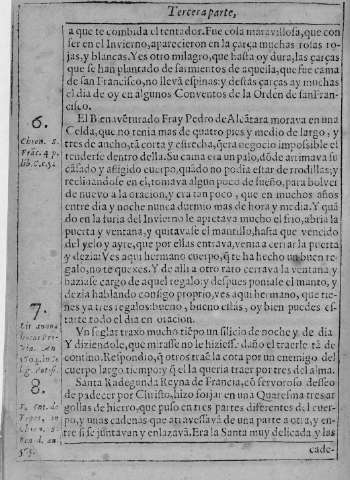 Tercera parte,
a que te combida el tentador. Fue cosa maravillosa, que con
ser en el Invierno, aparecieron en la çarça muchas rosas ro-
jas, y blancas. Y es otro milagro, que hasta oy dura, las çarças
que se han plantado de sarmientos de aquella, que fue cama
de san Francisco, no llevã espinas: y destas çarças ay muchas
el dia de oy en algunos Conventos de la Orden de san Fran-
cisco.
6.
Chron. S.
Frãc. 4. p.
lib.
El Bien avẽturado Fray Pedro de Alcãtara morava en una
Celda, que no tenia mas de quatro pies y medio de largo, y
tres de ancho, tã corta y estrecha, q̃ era negocio impossible el
tenderse dentro della. Su cama era un palo, dõde arrimava su
cãsado, y afligido cuerpo, quãdo no podia estar de rodillas; y
reclinãdose en el, tomava algun poco de sueño, para bolver
de nuevo a la oracion, y era tan poco, que en muchos años
entre dia y noche nunca durmio mas de hora y media. Y quã
do en la furia del Invierno le apretava mucho el frio, abria la
puerta y ventana, y quitavase el mantillo, hasta que vencido
del yelo y ayre, que por ellas entrava, venia a cerrar la puerta
y dezia: Ves aqui hermano cuerpo, q̃ te ha hecho un buen re-
galo, no te quexes. Y de alli a otro rato cerrava la ventana y
haziase cargo de aquel regalo: y despues poniase el manto, y
dezia hablando consigo proprio, ves aqui hermano, que tie-
nes ya tres regalos: bueno, bueno estàs, oy bien puedes es-
tarte todo el dia en oracion.
7.
Un seglar traxo mucho tiẽpo un silicio de noche y de dia
Y diziendole, que mirasse no le hiziesse daño el traerle tã de
contino. Respondio, q̃ otros traẽ la cota por un enemigo del
cuerpo largo tiempo: y q̃ el la queria traer por tres del alma.
8.
Santa Radegonda Reyna de Francia, cõ fervoroso desseo
de padecer por Christo, hizo forjar en una Quaresma tres ar
gollas de hierro, que puso en tres partes diferentes del cuer-
po, y unas cadenas que atravessavã de una parte a otra, y en-
tre si se jũntavan y enlazavã. Era la Santa muy delicada y las
cade-